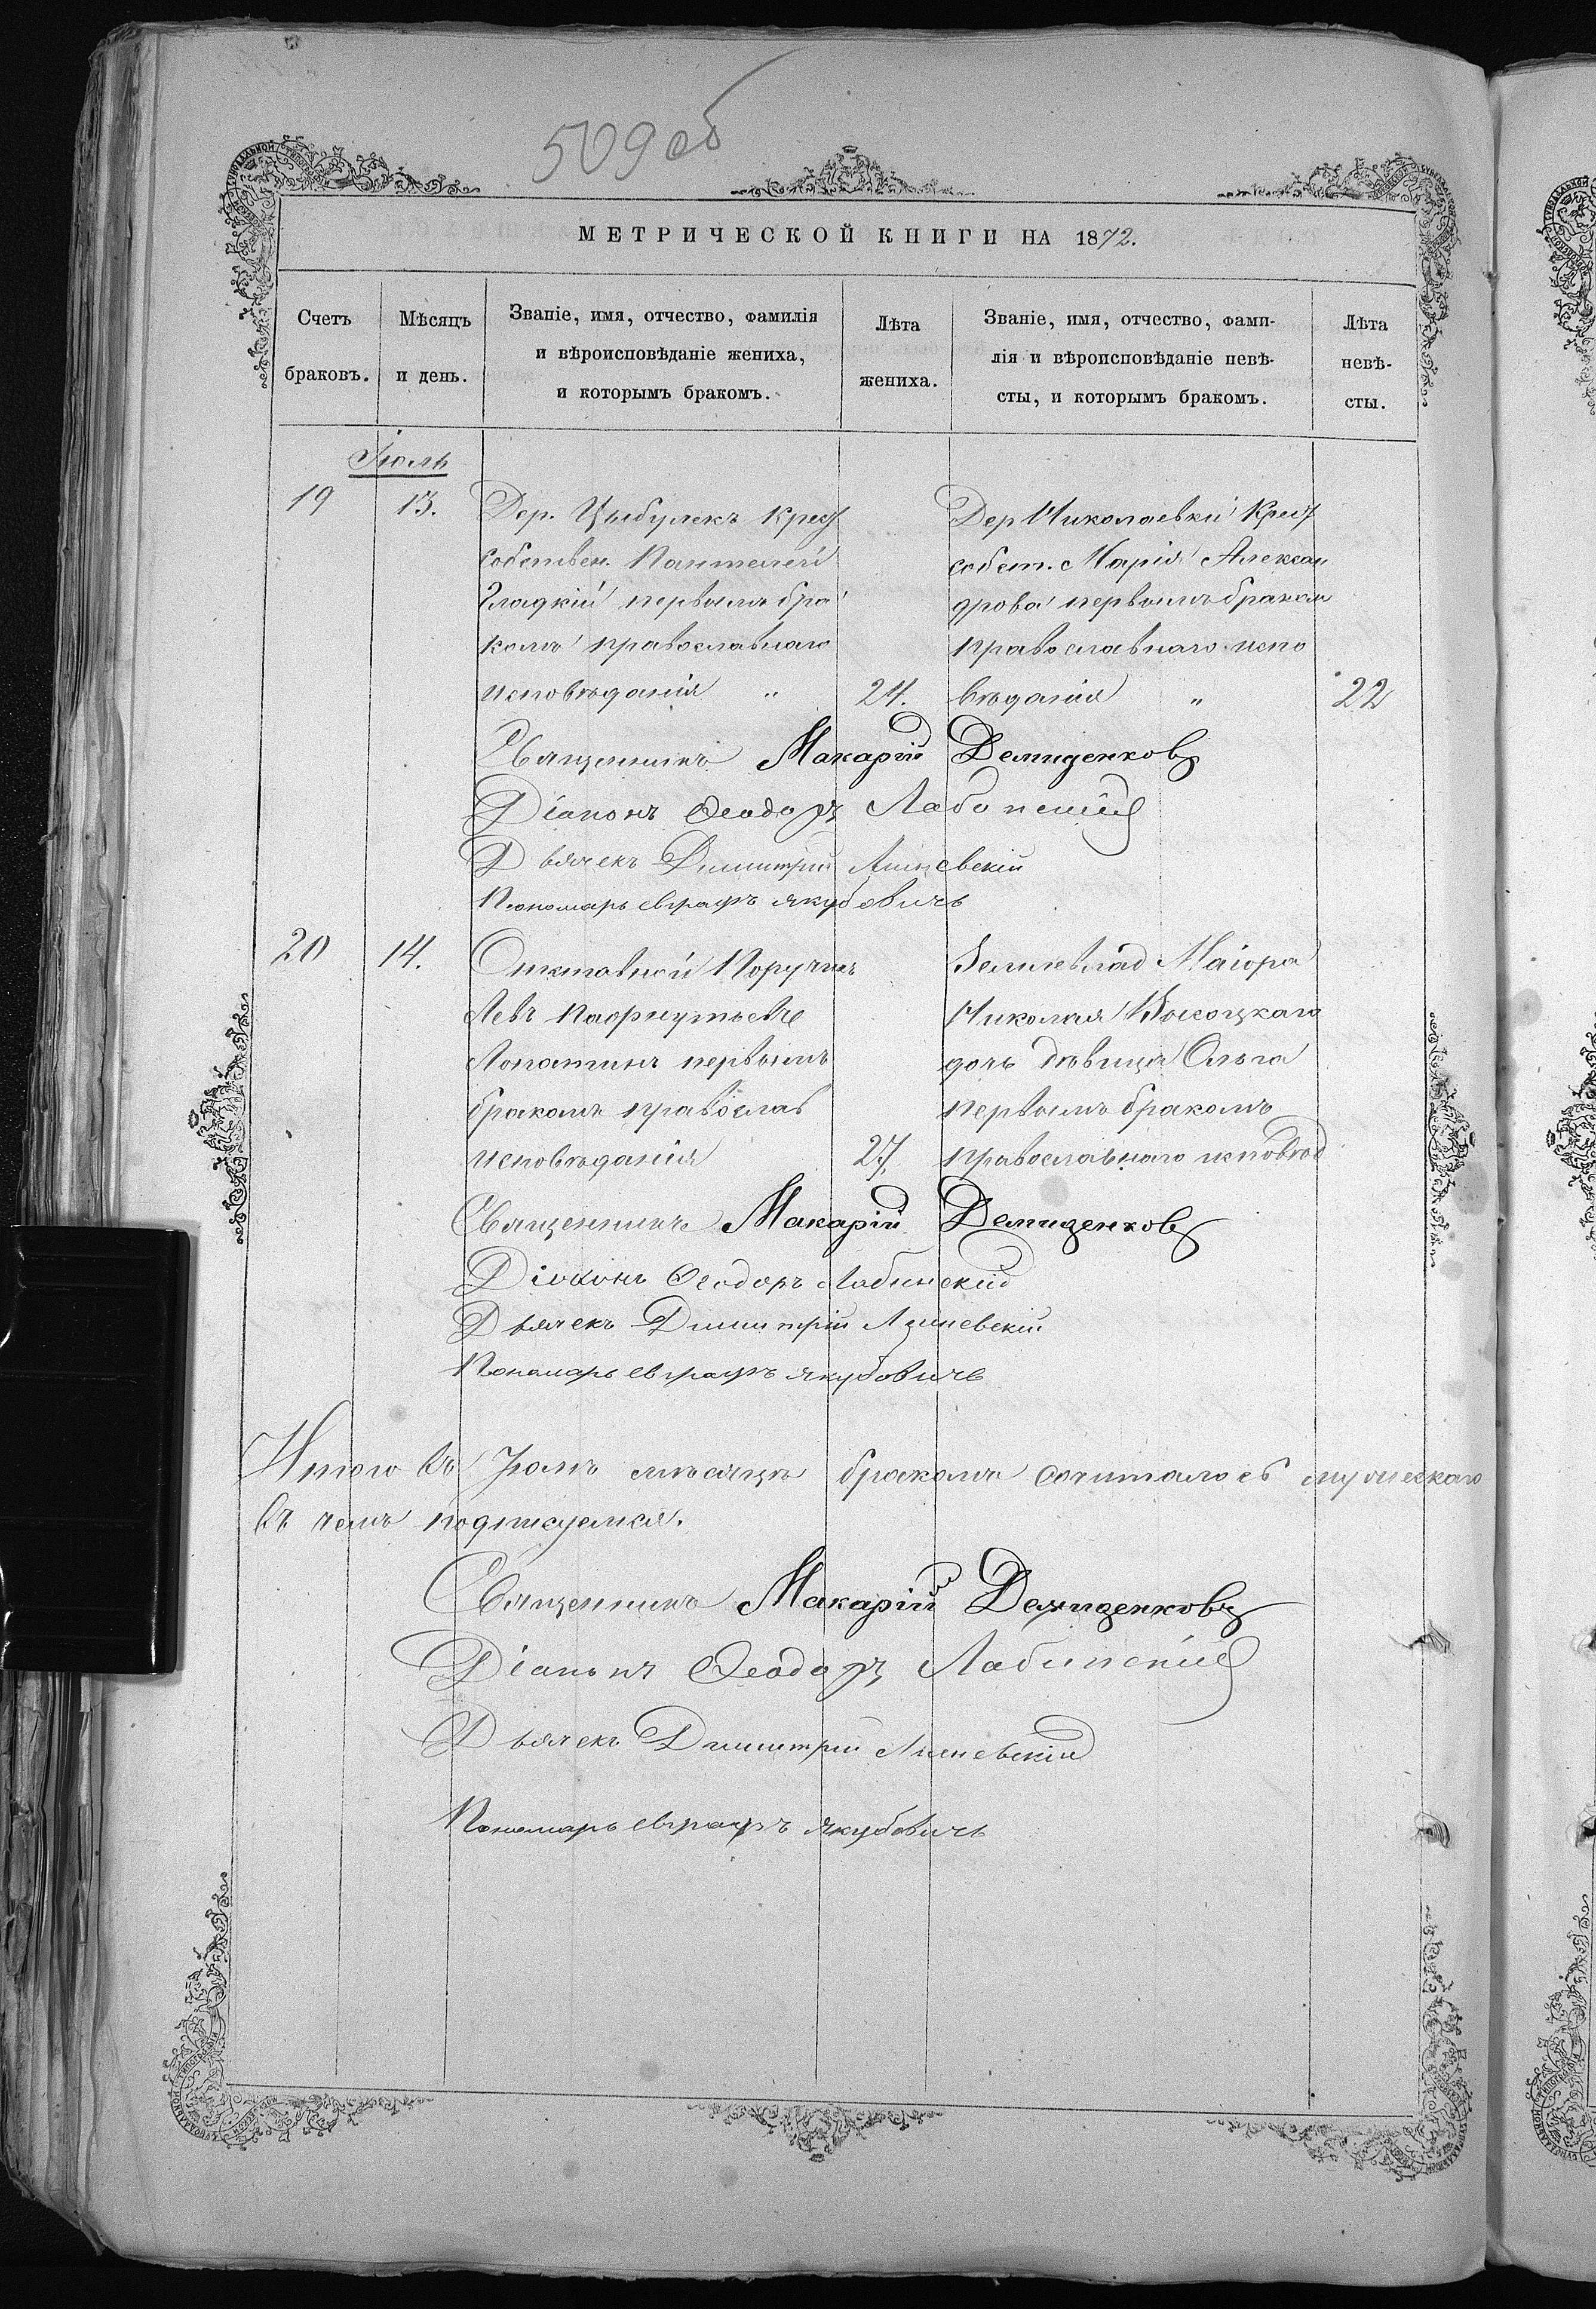 509 об
МЕТРИЧЕСКОЙ КНИГИ НА 1872.
Счетъ браковъ.
Мѣсяцъ и день.
Званіе, имя, отчество, фамилія
и вѣроисповѣданіе жениха,
и которымъ бракомъ.
Лѣта жениха.
Званіе, имя, отчество, фами-
лія и вѣроисповѣданіе невѣ-
сты, и которымъ бракомъ.
Лѣта невѣ-
сты.
Іюль
19 13.
Дер. Цыбулекъ Крест
собствен. Пантелей
Гладкій первымъ бра
комъ православнаго
исповѣданія " 24.
Дер Николаевки Крест
собст. Марія Алексан
дрова первымъ бракомъ
православнаго испо
вѣданія " 22
Священникъ Макарій Демиденковъ
Діаконъ Ѳеодоръ Лабинскій
Дьячекъ Димитрій
Пономарь Евграфъ Якубовичъ
20 14.
Отставной Поручикъ
Левъ
Лопатинъ первымъ
бракомъ православ
исповѣданія 27,
Землевлад Маіора
Николая Высоцкаго
дочь дѣвица Ольга
первымъ бракомъ
православнаго исповѣд
Священникъ Макарій Демиденковъ
Діаконъ Ѳеодоръ Лабинскій
Дьячекъ Димитрій
Пономарь Евграфъ Якубовичъ
Итого въ Іюлѣ мѣсяцѣ бракомъ сочиталось мужескаго
въ чемъ подписуемся.
Священникъ Макарій Демиденковъ
Діаконъ Ѳеодоръ Лабинскій
Дьячекъ Димитрій
Пономарь Евграфъ Якубовичъ